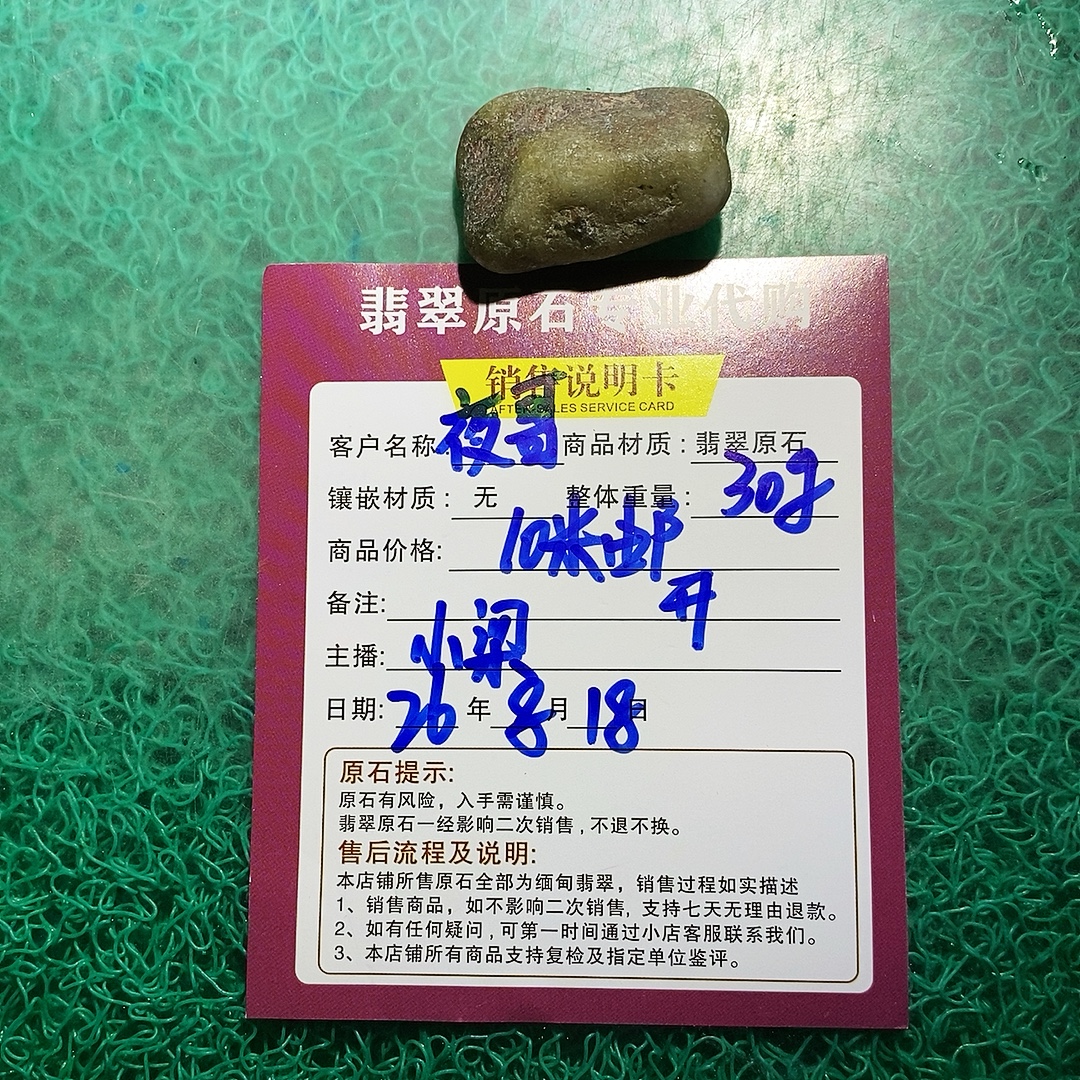 翡翠原石专业代购
销售说明卡
AFTER-SALES SERVICE CARD
客户名称: 夜哥 商品材质: 翡翠原石
镶嵌材质: 无 整体重量: 30g
商品价格: 10米邮
备注: 开
主播: 小梁
日期: 26年8月18日
原石提示:
原石有风险，入手需谨慎。
翡翠原石一经影响二次销售,不退不换。
售后流程及说明:
本店铺所售原石全部为缅甸翡翠，销售过程如实描述
1、销售商品，如不影响二次销售, 支持七天无理由退款。
2、如有任何疑问,可第一时间通过小店客服联系我们。
3、本店铺所有商品支持复检及指定单位鉴评。